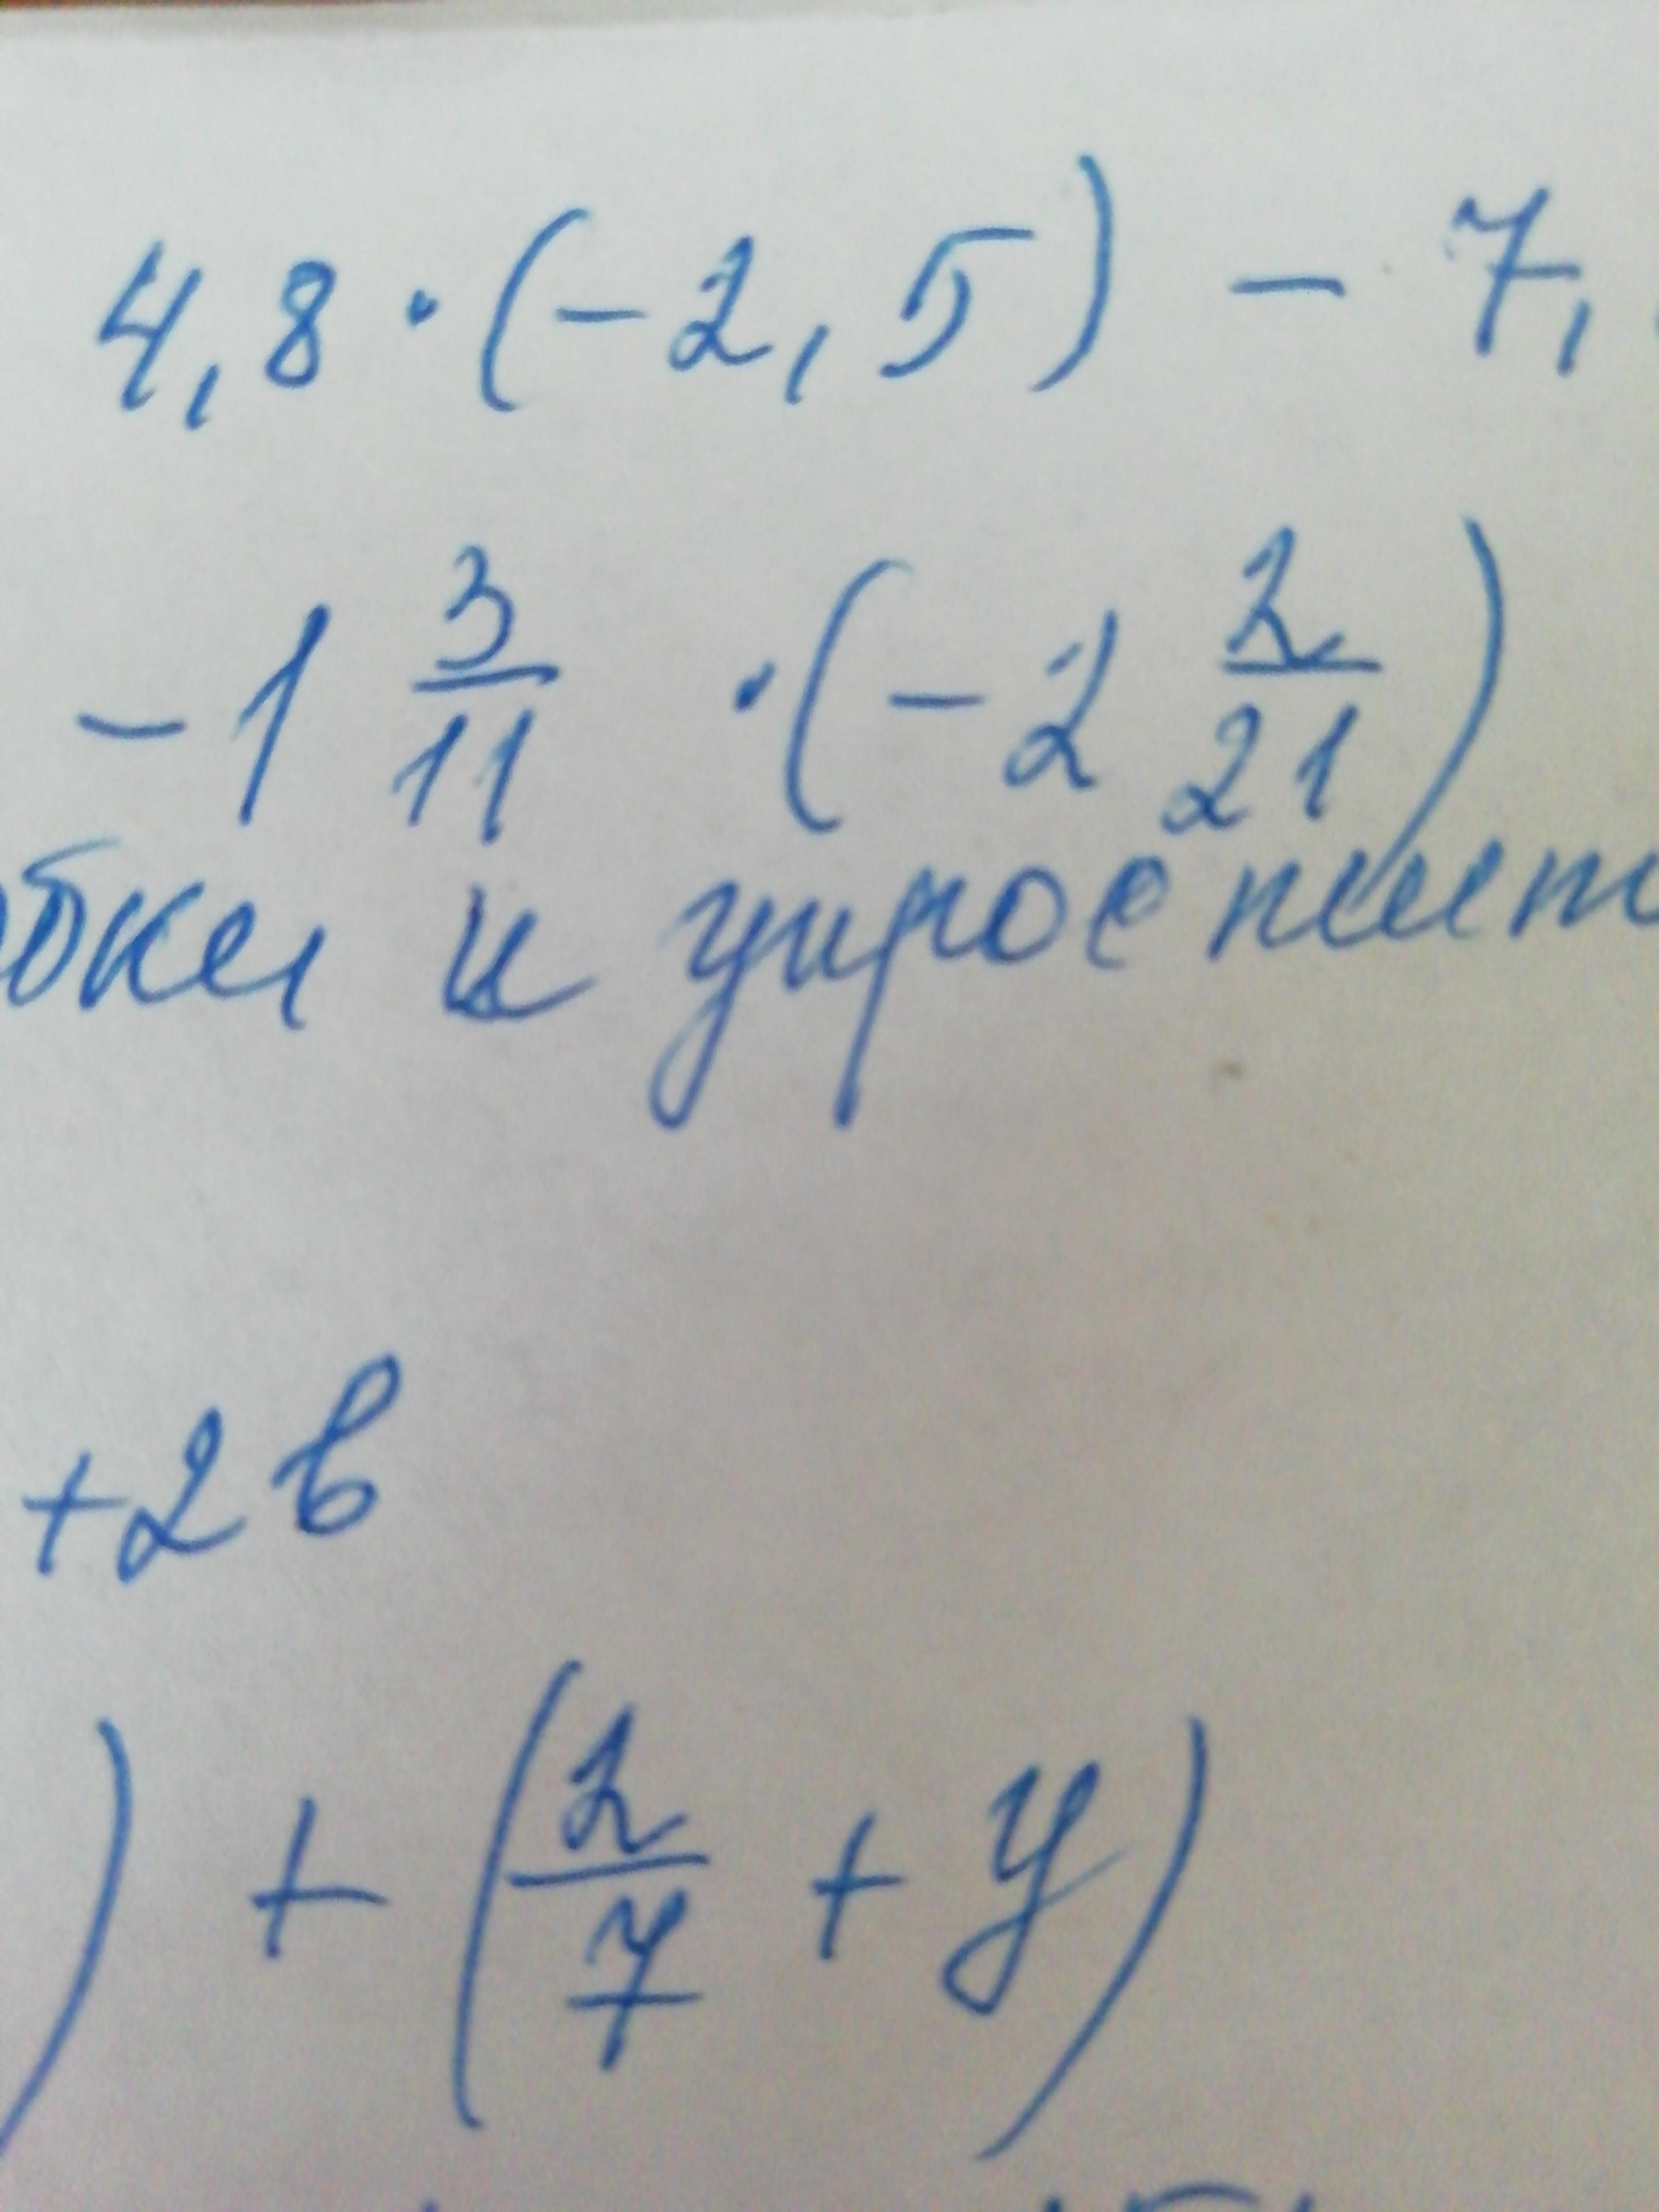 4,8 · (-2,5) - 7,
-1 3/11 · (-2 2/21)
бки и упростит
+2в
) + (2/7 + y)